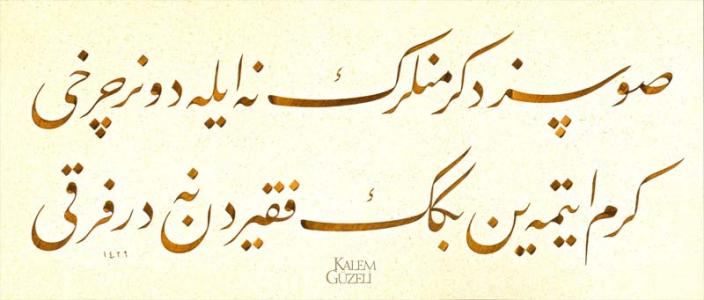 صوسز دكرمنلرك نه ايله دونر چرخی
كرم ايتمه‌ين بكك فقيردن نه در فرقی
١٤٢٩
KALEM
GÜZELİ